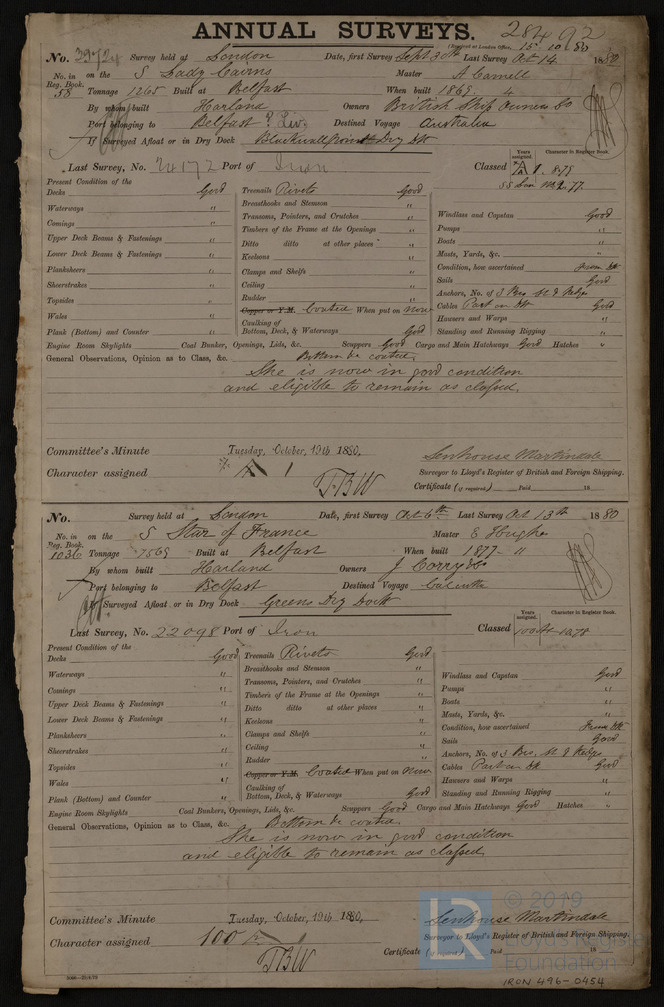 ANNUAL SURVEYS. 28492
(Received at London Office, 15 10 80
No. 3972 Survey held at London Date, first Survey Sept 30th Last Survey Oct 14 1880
No. in Reg. Book. 58 on the S Lady Cairns Master A Camell
Tonnage 1265 Built at Belfast When built 1869. 4
By whom built Harland Owners British Ship Owners Co
Port belonging to Belfast ? Liv. Destined Voyage Australia
If Surveyed Afloat or in Dry Dock Blackwall Point Dry Dk
Last Survey, No. 24172 Port of Iron Classed
Years assigned. Character in Register Book.
A 1. 8.78
SS Lon No2. 77.
Present Condition of the
Decks Good Treenails Rivets Good
Waterways " Breasthooks and Stemson "
Comings " Transoms, Pointers, and Crutches " Windlass and Capstan Good
Upper Deck Beams & Fastenings " Timbers of the Frame at the Openings " Pumps "
Lower Deck Beams & Fastenings " Ditto ditto at other places " Boats "
Planksheers " Keelsons " Masts, Yards, &c. "
Sheerstrakes " Clamps and Shelfs " Condition, how ascertained From Dk
Topsides " Ceiling " Sails Good
Wales " Rudder " Anchors, No. of 3 Bro, St & Kedge
Copper or Y.M. Coated When put on now Cables Part on Dk Good
Plank (Bottom) and Counter " Caulking of Bottom, Deck, & Waterways Good Hawsers and Warps "
Standing and Running Rigging "
Engine Room Skylights Coal Bunker, Openings, Lids, &c. Scuppers Good Cargo and Main Hatchways Good Hatches "
General Observations, Opinion as to Class, &c. Bottom &c coated.
She is now in good condition
and eligible to remain as classed.
Committee's Minute Tuesday, October, 19th 1880. Senhouse Martindale
Character assigned A 1 Surveyor to Lloyd's Register of British and Foreign Shipping.
TBW Certificate (if required) Paid 18
No. Survey held at London Date, first Survey Oct 6th Last Survey Oct 13th 1880
No. in Reg. Book. 1036 on the S Star of France Master E Hughes
Tonnage 1569 Built at Belfast When built 1877. 11
By whom built Harland Owners J Corry & Co
Port belonging to Belfast Destined Voyage Calcutta
If Surveyed Afloat or in Dry Dock Greens Dry Dock
Last Survey, No. 22098 Port of Iron Classed
Years assigned. Character in Register Book.
100 A 1
Present Condition of the
Decks Good Treenails Rivets Good
Waterways " Breasthooks and Stemson "
Comings " Transoms, Pointers, and Crutches " Windlass and Capstan Good
Upper Deck Beams & Fastenings " Timbers of the Frame at the Openings " Pumps "
Lower Deck Beams & Fastenings " Ditto ditto at other places " Boats "
Planksheers " Keelsons " Masts, Yards, &c. "
Sheerstrakes " Clamps and Shelfs " Condition, how ascertained From Dk
Topsides " Ceiling " Sails Good
Wales " Rudder " Anchors, No. of 3 Bro, St & Kedge
Copper or Y.M. Coated When put on Now Cables Part on Dk Good
Plank (Bottom) and Counter " Caulking of Bottom, Deck, & Waterways Good Hawsers and Warps "
Standing and Running Rigging "
Engine Room Skylights Coal Bunkers, Openings, Lids, &c. Scuppers Good Cargo and Main Hatchways Good Hatches "
General Observations, Opinion as to Class, &c. Bottom &c coated.
She is now in good condition
and eligible to remain as classed.
Committee's Minute Tuesday, October, 19th 1880. Senhouse Martindale
Character assigned 100 A Surveyor to Lloyd's Register of British and Foreign Shipping.
TBW Certificate (if required) Paid 18
© 2019
LR Lloyd's Register
Foundation
IRON 496-0454